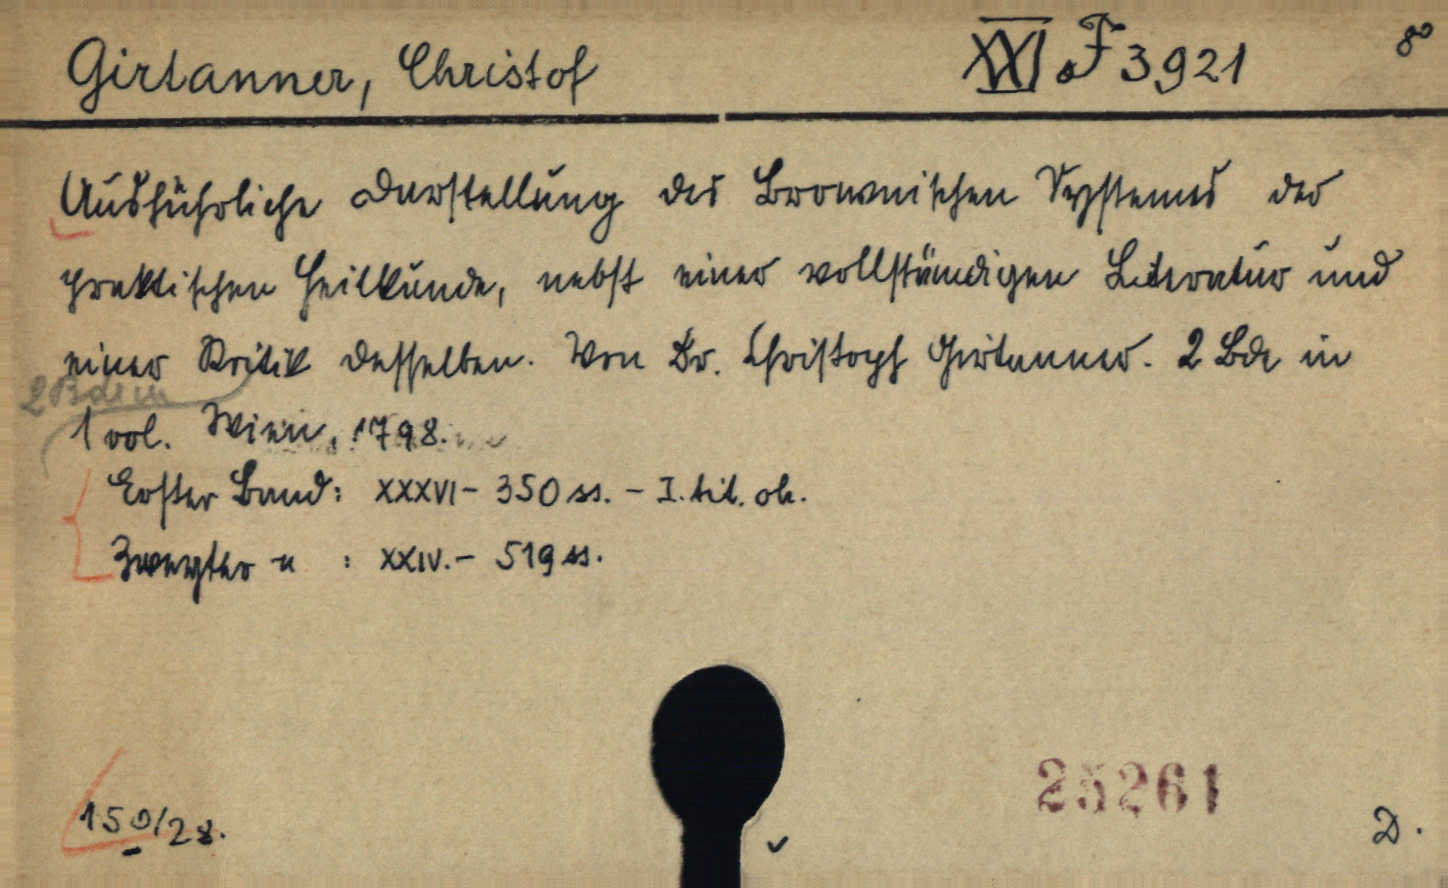 Girtanner, Christof XXI F 3921 8°
Ausführliche Darstellung des Brownischen Systemes der
praktischen Heilkunde, nebst einer vollständigen Literatur und
einer Kritik desselben. Von Dr. Christoph Girtanner. 2 Bde in
2 Bde in
1 vol. Wien, 1798.
Erster Band: XXXVI – 350 ss. – I. tit. ok.
Zweyter " : XXIV. – 519 ss.
25261
150/28.
D.